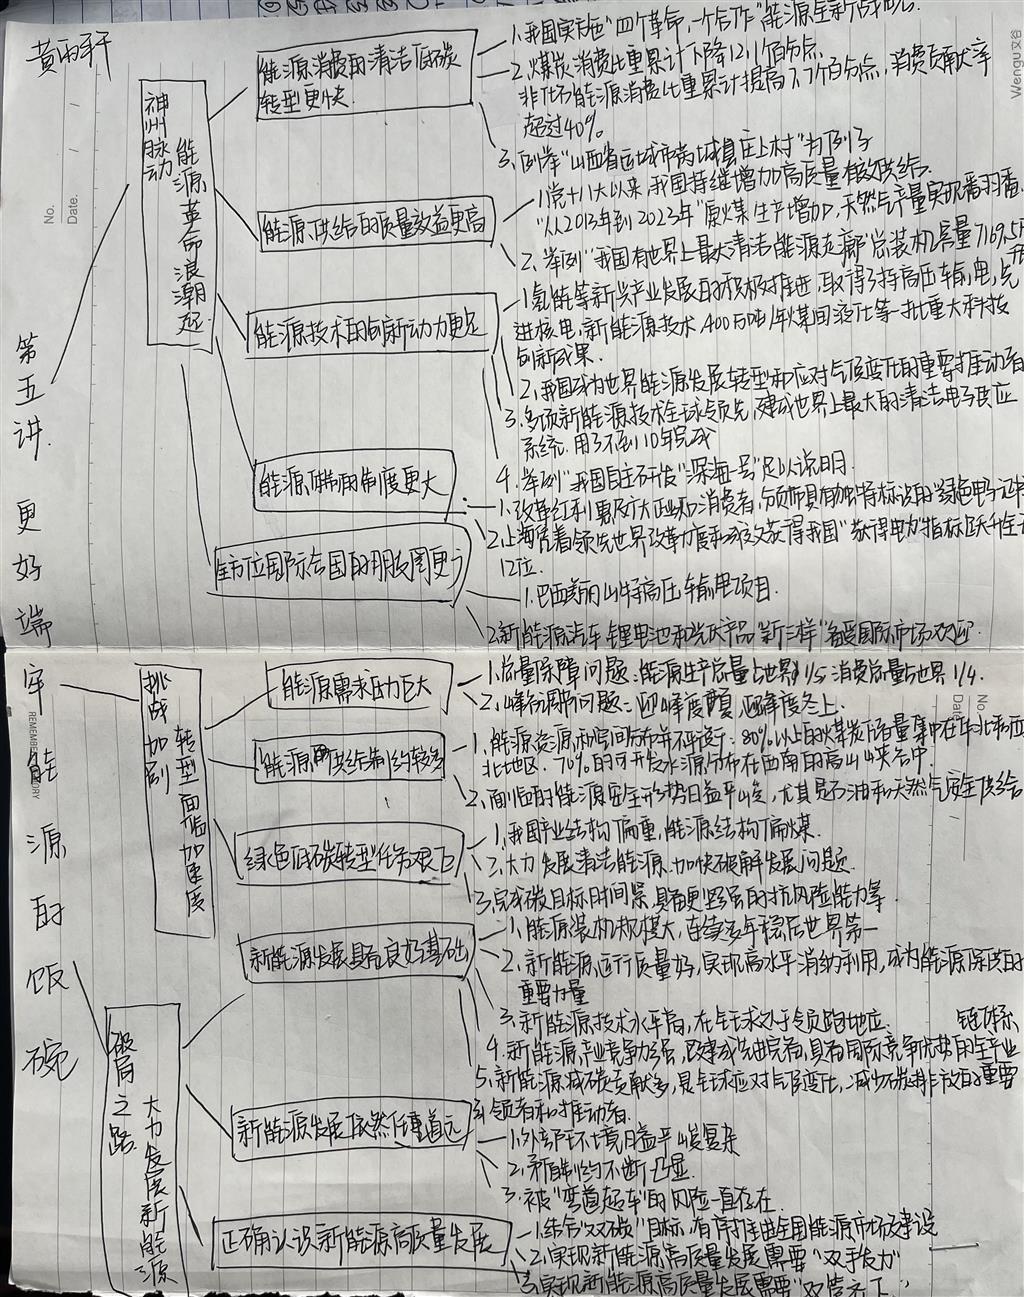 黄雨轩
No.
Date.
Wengu 文谷
第五讲 更好端牢能源的饭碗
神州脉动
能源革命浪潮起
能源消费的清洁低碳
转型更快
1.我国实施"四个革命,一个合作"能源全新战略
2.煤炭消费比重累计下降12.1个百分点
非化石能源消费比重累计提高7.7个百分点,消费贡献率
超过40%
3.例举"山西省运城市芮城县庄上村"为例子
能源供给的质量效益更高
1.党十八大以来,我国持续增加高质量有效供给
"从2013年到2023年"原煤生产增加,天然气产量实现翻番
2.举例"我国有世界上最大清洁能源走廊"总装机容量7169.5万
能源技术的创新动力更足
1.氢能等新兴产业发展的积极推进,取得了特高压输电,先
进核电,新能源技术,400万吨/年煤间液化等一批重大科技
创新成果.
2.我国成为世界能源发展转型和应对气候变化的重要推动者
3.多项新能源技术全球领先,建成世界上最大的清洁电力供应
系统.用了不到10年完成
4.举例"我国自主研发"深海一号"足以说明.
能源体制的制度更大
1.改革红利惠及广大企业和消费者,颁布具有独特标识的"绿色电力证书
2.上海凭着领先世界改革力度和成效获得我国"获得电力"指标跃升全
12位.
全方位国际合国的朋友圈更广
1.巴西美丽山特高压输电项目.
2.新能源汽车 锂电池和光伏产品"新三样"备受国际市场欢迎.
挑战加剧
转型面临加速度
能源需求压力巨大
1.总量保障问题:能源生产总量占世界1/5 消费总量占世界1/4.
2.峰谷调节问题:迎峰度夏,迎峰度冬上.
能源的供给制约较多
1.能源资源和空间分布并不平衡:80%以上的煤炭储量集中在华北和西
北地区.70%的可开发水源分布在西南的高山峡谷中.
2.面临的能源安全形势日益严峻,尤其是石油和天然气安全供给
绿色低碳转型任务艰巨
1.我国产业结构偏重,能源结构偏煤.
2.大力发展清洁能源.加快破解发展问题.
3.完成碳目标时间紧,具备更坚强的抗风险能力等.
破局之路
大力发展新能源
新能源发展具有良好基础
1.能源装机规模大,连续多年稳居世界第一
2.新能源运行质量好,实现高水平消纳利用,成为能源保供的
重要力量
3.新能源技术水平高,在全球处于领跑地位. 链体系
4.新能源产业竞争力强,已建成先进完备,具有国际竞争优势的全产业
5.新能源减碳贡献多,是全球应对气候变化,减少碳排放的重要
领者和推动者.
新能源发展依然任重道远
1.外部环境日益严峻复杂
2.新制约不断凸显
3.被"弯道超车"的风险一直存在
正确认识新能源高质量发展
1.结合"双碳"目标,有序推进全国能源市场建设
2.实现新能源高质量发展需要"双手发力"
3.实现新能源高质量发展需要"双管齐下".
No.
Date